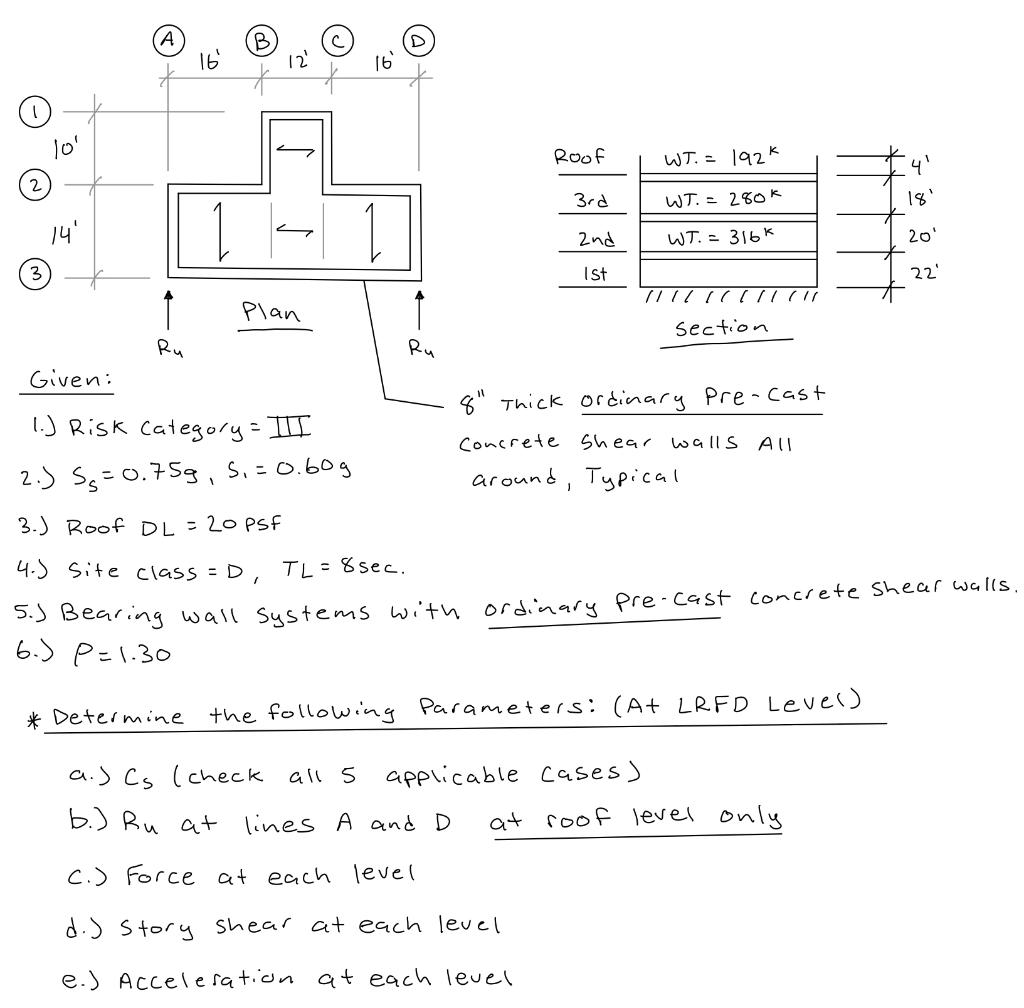 A B C D
16' 12' 16'
1
10'
2
14'
3
Plan
Ru Ru
Roof WT. = 192K 4'
3rd WT. = 280K 18'
2nd WT. = 316K 20'
1st 22'
Section
8" Thick ordinary Pre-Cast
concrete shear walls All
around, Typical
Given:
1.) Risk Category = III
2.) Ss = 0.75g, S1 = 0.60g
3.) Roof DL = 20 PSF
4.) Site class = D, TL = 8 sec.
5.) Bearing wall systems with ordinary Pre-Cast concrete shear walls.
6.) ρ = 1.30
* Determine the following Parameters: (At LRFD Level)
a.) Cs (check all 5 applicable cases)
b.) Ru at lines A and D at roof level only
c.) Force at each level
d.) Story shear at each level
e.) Acceleration at each level